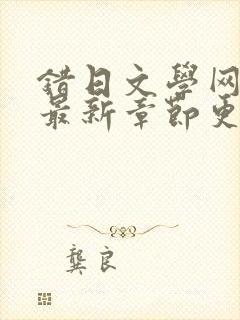 錯日文學网
最新章節更
龔良